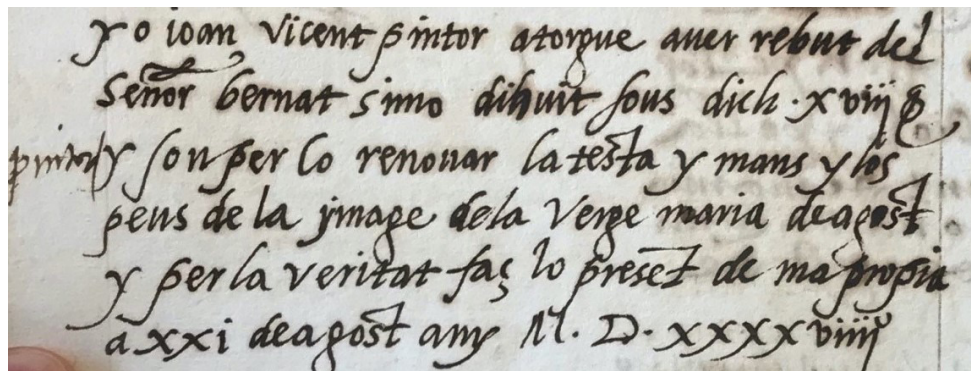 yo ioan vicent pintor atorgue auer rebut del
Señor bernat simo dihuit sous dich · xviij ß
pintor
y son per lo renouar la testa y mans y los
peus de la ymage de la Verge maria de agost
y per la veritat faç lo preset de ma propia
a xxi de agost any M · D · xxxxviiij